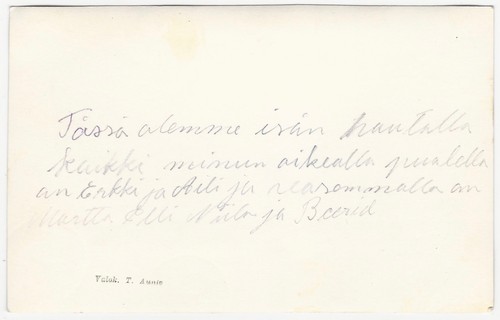 Tässä olemme isän hautalla
kaikki minun oikealla puolella
on Erkki ja Aili ja vasemmalla on
Martta Elli Niilo ja Beerid
Valok. T. Aunio